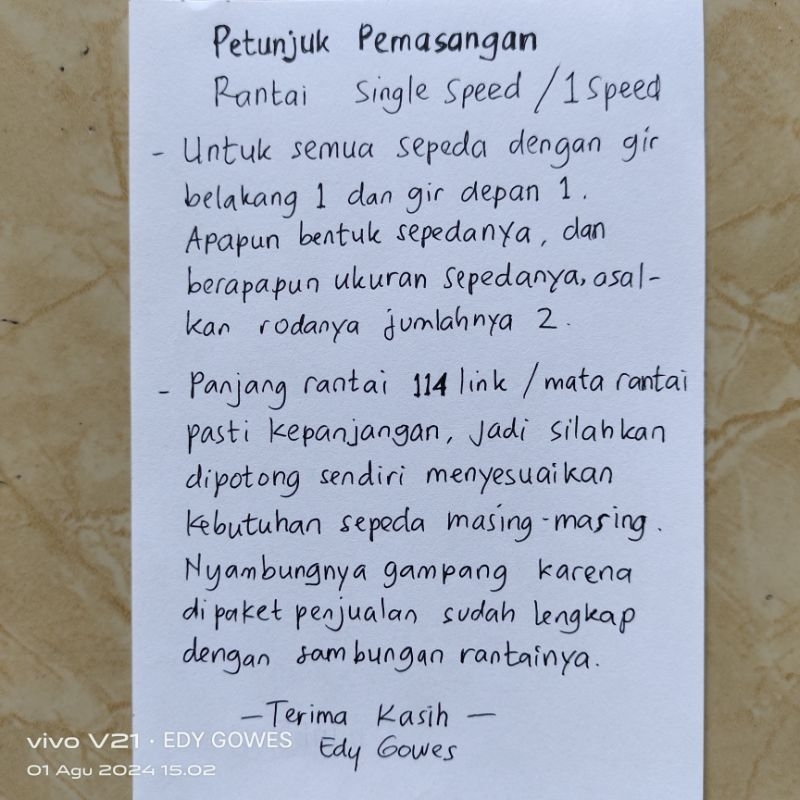 Petunjuk Pemasangan
Rantai Single Speed / 1 Speed
- Untuk semua sepeda dengan gir
belakang 1 dan gir depan 1.
Apapun bentuk sepedanya, dan
berapapun ukuran sepedanya, asal-
kan rodanya jumlahnya 2.
- Panjang rantai 114 link / mata rantai
pasti kepanjangan, jadi silahkan
dipotong sendiri menyesuaikan
kebutuhan sepeda masing-masing.
Nyambungnya gampang karena
di paket penjualan sudah lengkap
dengan sambungan rantainya.
- Terima Kasih -
Edy Gowes
vivo V21 · EDY GOWES
01 Agu 2024 15.02